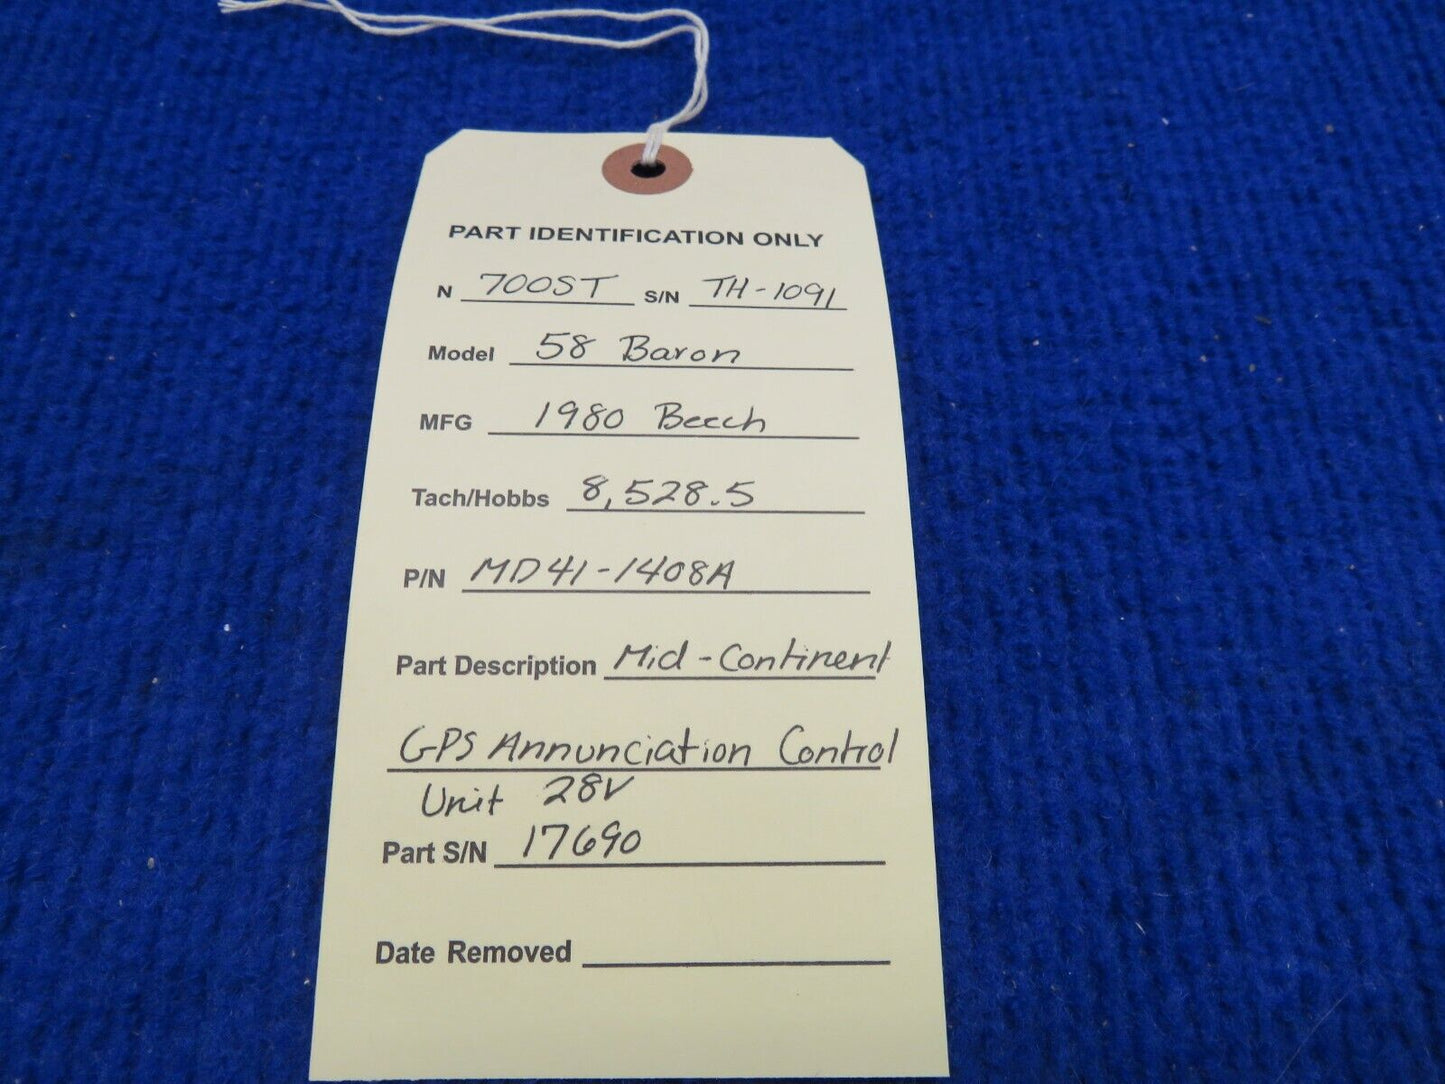 PART IDENTIFICATION ONLY
N 700ST S/N TH-1091
Model 58 Baron
MFG 1980 Beech
Tach/Hobbs 8,528.5
P/N MD41-1408A
Part Description Mid-Continent
GPS Annunciation Control
Unit 28V
Part S/N 17690
Date Removed